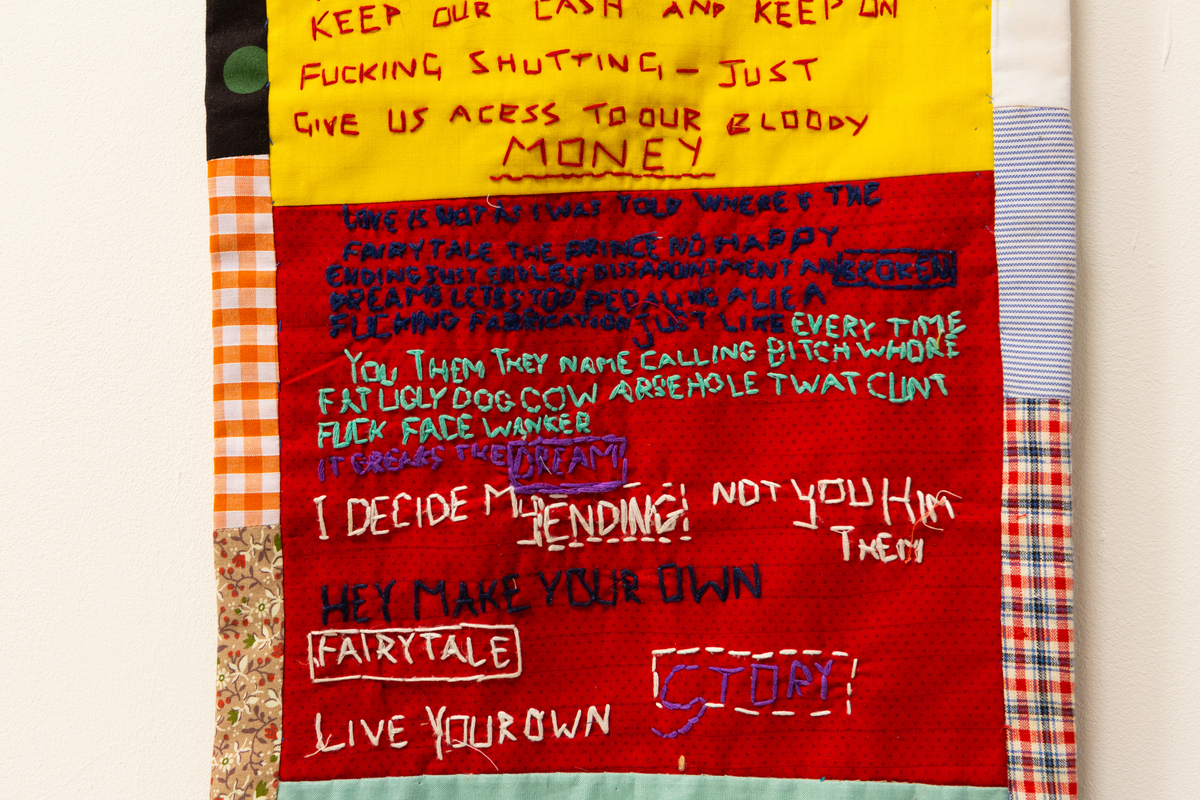 KEEP OUR CASH AND KEEP ON
FUCKING SHUTTING – JUST
GIVE US ACESS TO OUR BLOODY
MONEY
LOVE IS NOT AS I WAS TOLD WHERE'S THE
FAIRYTALE THE PRINCE NO HAPPY
ENDING JUST ENDLESS DISSAPOINTMENT AN BROKEN
DREAMS LETS STOP PEDALING A LIE A
FUCKING FABRICATION JUST LIKE EVERY TIME
YOU THEM THEY NAME CALLING BITCH WHORE
FAT UGLY DOG COW ARSEHOLE TWAT CUNT
FUCK FACE WANKER
IT BREAKS THE DREAM
I DECIDE MY ENDING NOT YOU HIM
THEM
HEY MAKE YOUR OWN
FAIRYTALE
STORY
LIVE YOUR OWN